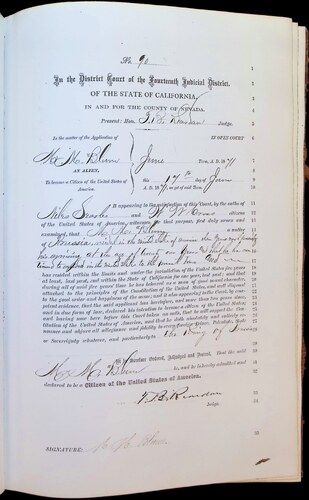 No. 92
In the District Court of the Fourteenth Judicial District,
OF THE STATE OF CALIFORNIA,
IN AND FOR THE COUNTY OF NEVADA.
Present: Hon. T. B. Reardan Judge.
In the matter of the Application of
IN OPEN COURT
M. M. Blum
June Term, A. D. 1871
AN ALIEN,
To become a Citizen of the United States of America.
this 17th day of June
A. D. 1871, as yet of said Term.
It appearing to the satisfaction of this Court, by the oaths of
Niles Searls and citizens
of the United States of America, witnesses for that purpose, first duly sworn and
examined, that M. M. Blum a native
of Prussia
has resided within the limits and under the jurisdiction of the United States for years
at least, last past, and within the State of California for one year, last past; and that
during all of said five years' time he has behaved as a man of good moral character,
attached to the principles of the Constitution of the United States, and well disposed
to the good order and happiness of the same; and it also appearing to the Court, by com-
petent evidence, that the said applicant has heretofore, and more than two years since,
and in due form of law, declared his intention to become a citizen of the United States,
and having now here before this Court taken an oath, that he will support the Con-
stitution of the United States of America, and that he doth absolutely and entirely re-
nounce and abjure all allegiance and fidelity to every foreign Prince, Potentate, State
or Sovereignty whatever, and particularly to the King of Prussia
It is therefore Ordered, Adjudged and Decreed, That the said
M. M. Blum be, and he is hereby admitted and
declared to be a Citizen of the United States of America.
T. B. Reardan
Judge.
SIGNATURE: M. M. Blum